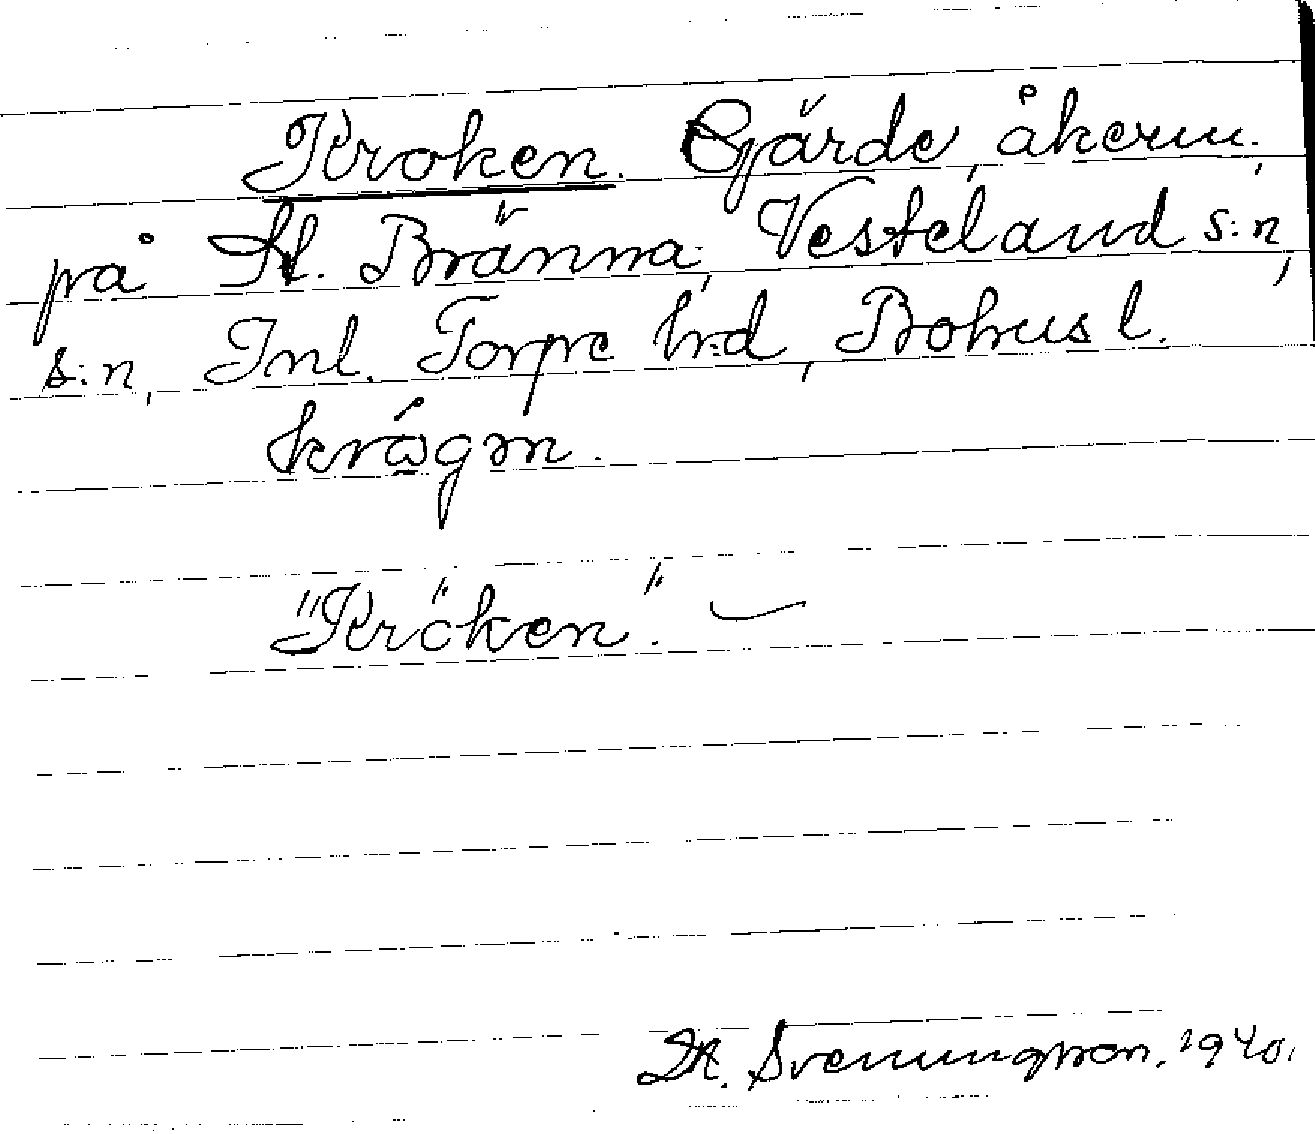 Kroken. Gärde, åkerm.,
på St. Bränna, Vesteland s:n,
s:n, Inl. Torpe h:d, Bohus l.
krȯ́gən.
"Kröken".
D.A. Svenungson. 1940.